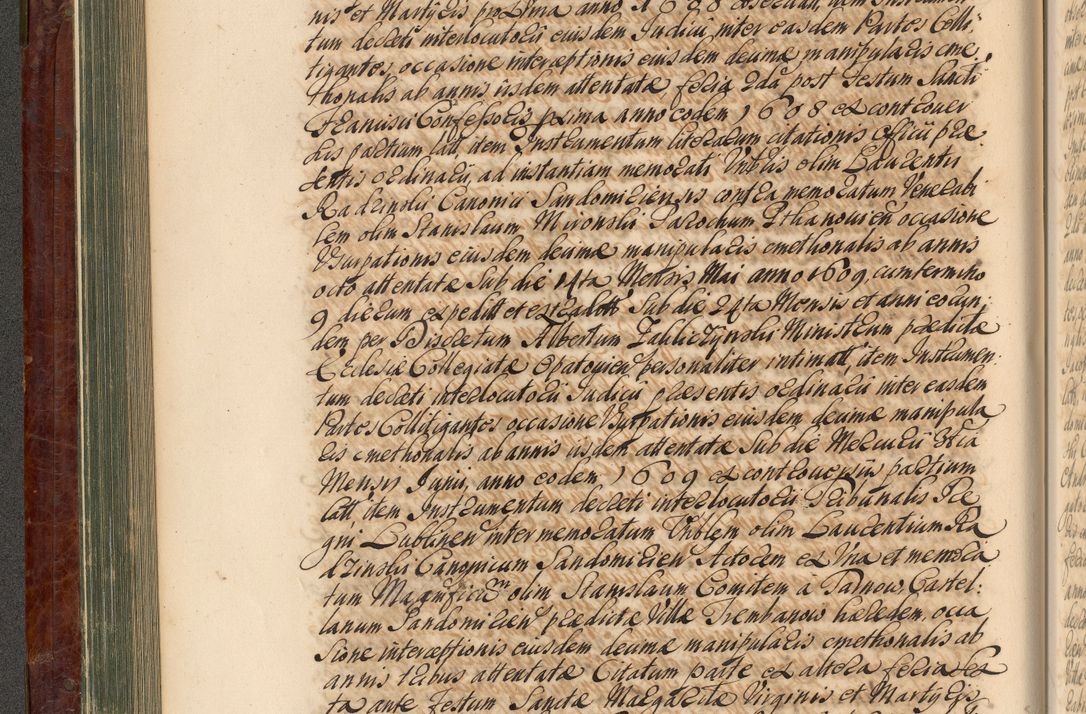 nis et Martyris proxima anno 1688 observan, item Instrumen-
tum decreti interlocutorii eiusdem Judicii inter easdem Partes Colli-
tigantes, occasione interceptionis eiusdem decimæ manipularis cme-
thonalis ab annis iisdem attentatæ feria 2da post Festum Sancti
Francisci Confessoris proxima anno eodem 1688 ex controver
siis partium lat, item Instrumentum literarum citationis Officii præ
sentis ordinarii, ad instantiam memorati Vnblis olim Laurentii
Radzinski Canonici Sandomiriensis contra memoratum Venerabi
lem olim Stanislaum Mironski Parochum Ithanovien occasione
Vsurpationis eiusdem decimæ manipularis cmethonalis ab annis
octo attentatæ Sub die 14ta Mensis Mai anno 1609 cum termino
9 dierum expeditt et extradítt Sub die 24ta Mensis et anni eorun-
dem per Discretum Albertum Zakliczynski Ministrum prædictæ
Ecclesiæ Collegiatæ Opatovien personaliter intimatt, item Instrumen-
tum decreti interlocutorii Judicii præsentis ordinarii inter easdem
Partes Collitigantes occasione Vsurpationis eiusdem decimæ manipula
ris cmethonalis ab annis iisdem attentatæ Sub die Mercurii 3tia
Mensis Junii, anno eodem, 1609 ex controversiis partium
latt, item Instrumentum decreti interlocutorii Tribunalis Re
gni Lublinen inter memoratum Vnblem olim Laurentium Ra
dzinski Canonicum Sandomirien Actorem ex Vna et memora
tum Magnificum olim Stanislaum Comitem à Tarnow, Castel-
lanum Sandomirien prædictæ Villæ Trembanow hæredem, occa
sione interceptionis eiusdem decimæ manipularis cmethonalis ab
annis tribus attentatæ Citatum parte ex altera feria sex
ta ante Festum Sanctæ Margaretæ Virginis et Martyris